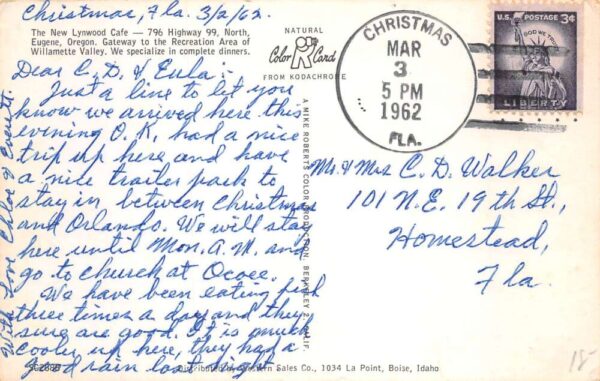 Christmas, Fla. 3/2/62.
The New Lynwood Cafe — 796 Highway 99, North,
Eugene, Oregon. Gateway to the Recreation Area of
Willamette Valley. We specialize in complete dinners.
NATURAL
Color Card
FROM KODACHROME
Dear C. D. & Eula:-
Just a line to let you
know we arrived here this
evening O.K., had a nice
trip up here and have
a nice trailer park to
stay in between Christmas
and Orlando. We will stay
here until Mon. A.M. and
go to church at Ocoee.
We have been eating fish
three times a day and they
sure are good. It is much
cooler up here, they had a
good rain last night.
With Love Chloe & Everett
A MIKE ROBERTS COLOR PRODUCTION, BERKELEY 2, CALIF.
CHRISTMAS
MAR
3
5 PM
1962
FLA.
U.S. POSTAGE 3¢
IN GOD WE TRUST
LIBERTY
Mr. & Mrs C. D. Walker
101 N.E. 19th St.,
Homestead,
Fla.
Distributed by Western Sales Co., 1034 La Point, Boise, Idaho
18-